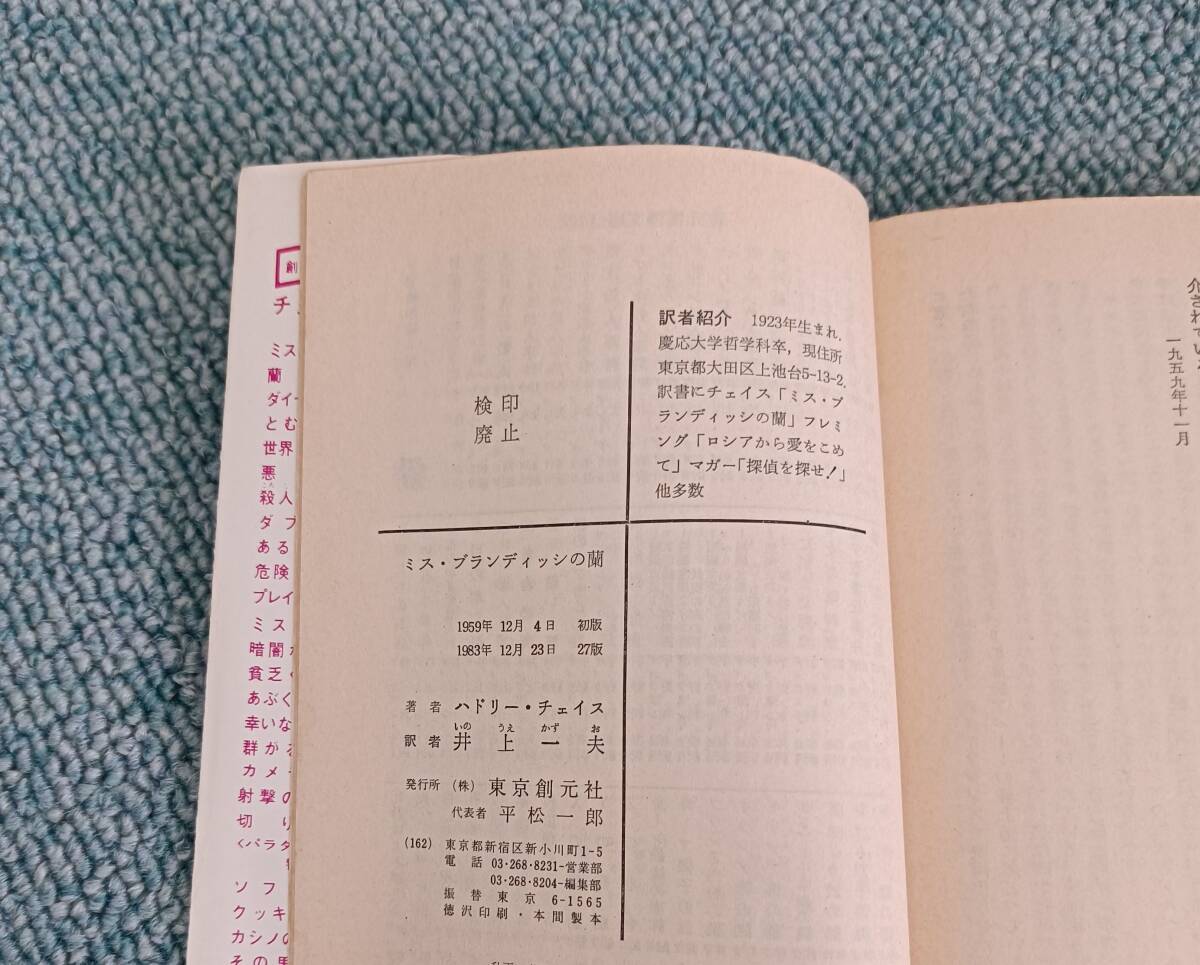 検印
廃止
訳者紹介 1923年生まれ.
慶応大学哲学科卒，現住所
東京都大田区上池台5-13-2.
訳書にチェイス「ミス・ブ
ランディッシの蘭」フレミ
ング「ロシアから愛をこめ
て」マガー「探偵を探せ！」
他多数
ミス・ブランディッシの蘭
1959年 12月 4日 初版
1983年 12月 23日 27版
著者 ハドリー・チェイス
いの うえ かず お
訳者 井上一夫
発行所 （株） 東京創元社
代表者 平松一郎
(162) 東京都新宿区新小川町1-5
電話 03・268・8231-営業部
03・268・8204-編集部
振替東京 6-1565
徳沢印刷・本間製本
創
チ
ミス
蘭
ダイ
とむ
世界
悪
殺人
ダブ
ある
危険
ブレイ
ミス
暗闇
貧乏
あぶく
幸いな
群がる
カメ
射撃の
切り
〈パラダ
ソフ
クッキ
カシノの
その男
介されている
一九五九年十一月